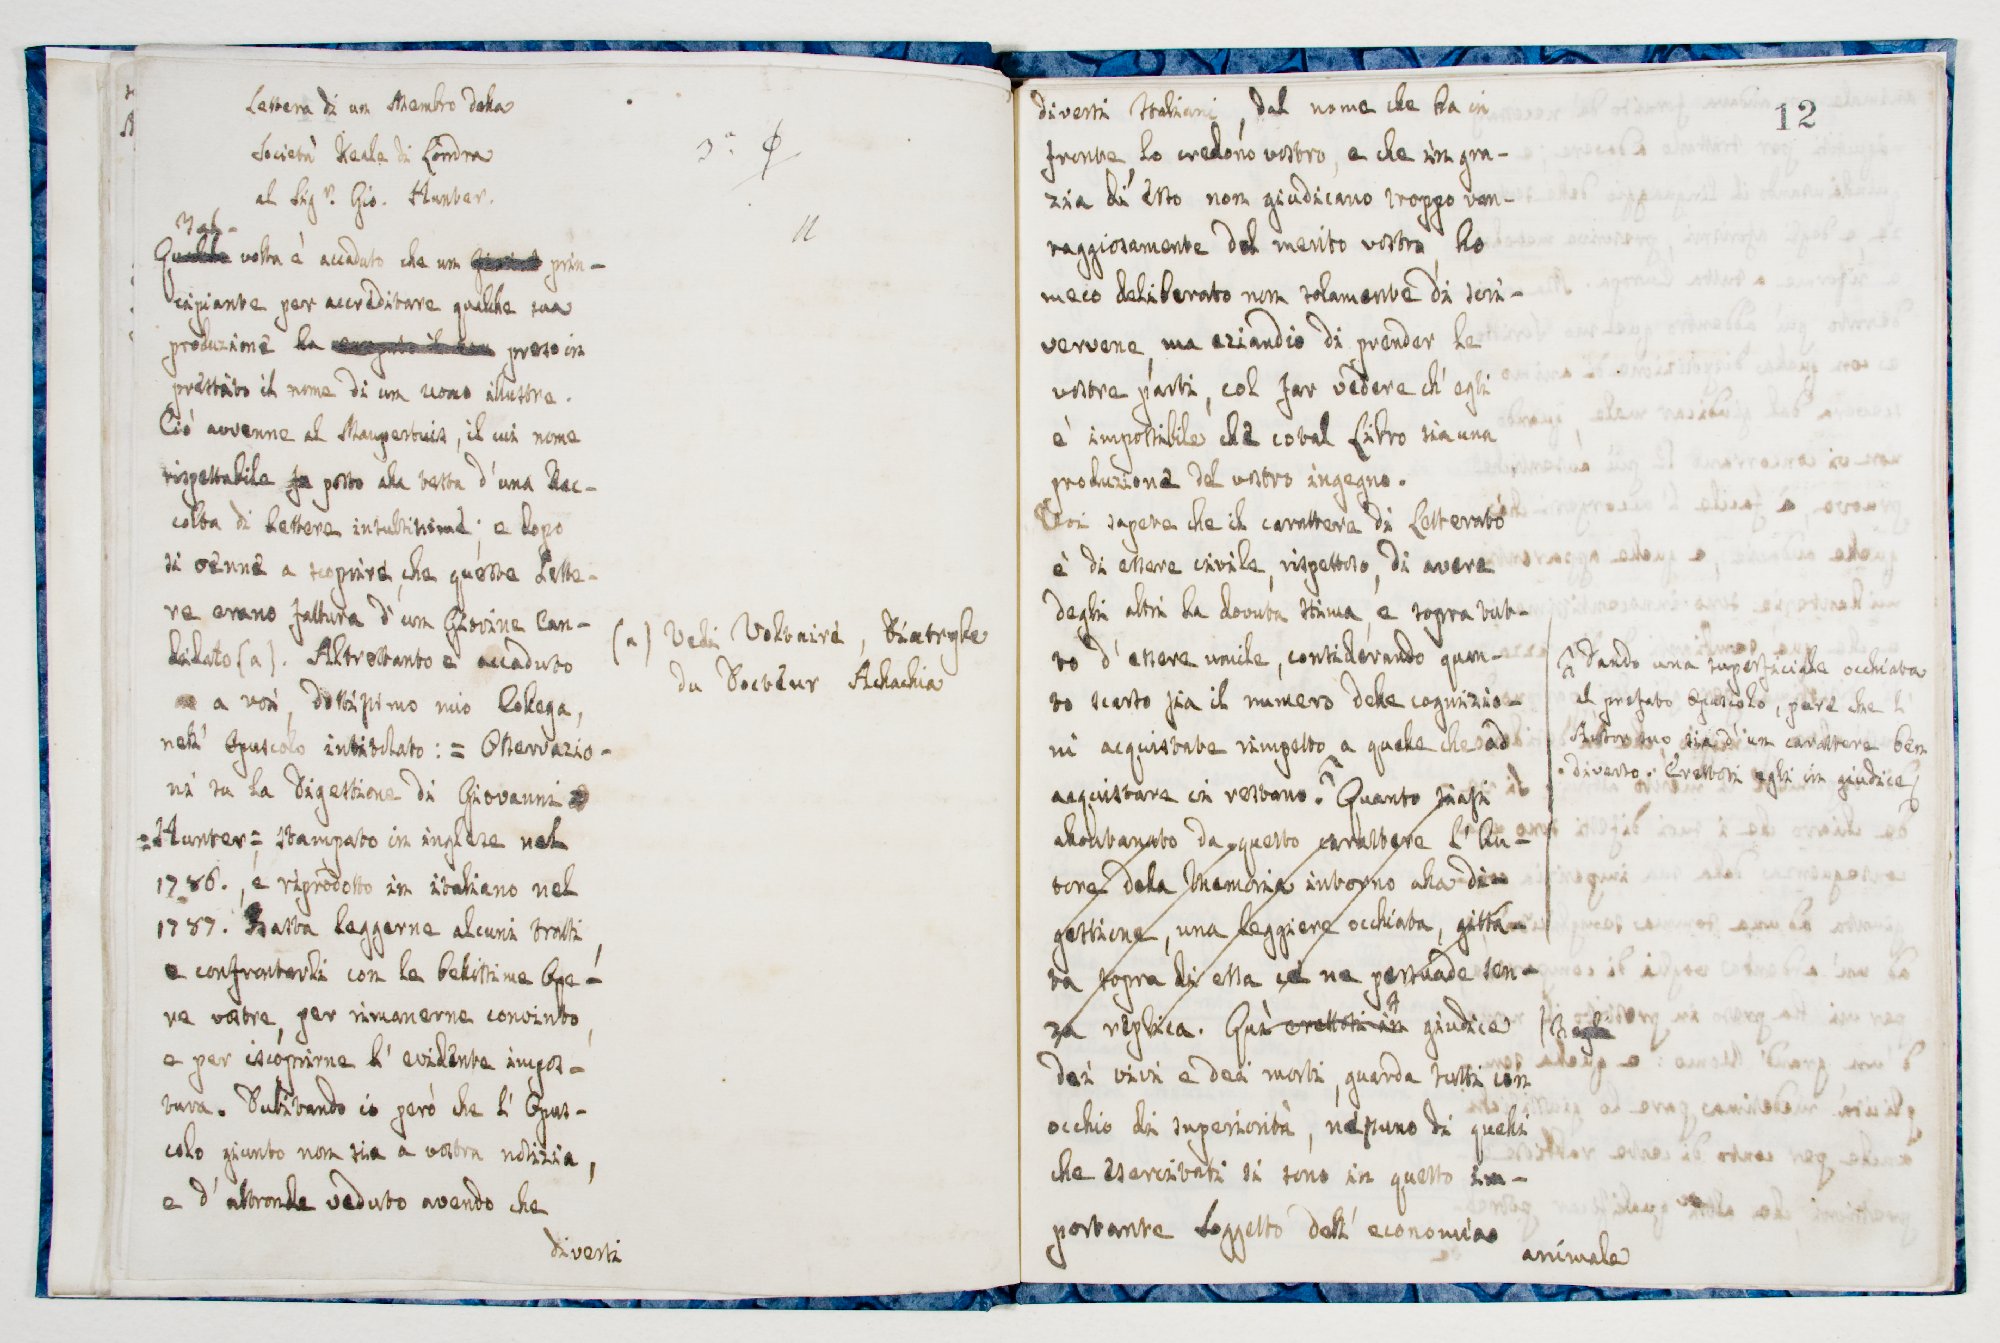 Lettera di un Membro della
Società Reale di Londra
al Sigr. Gio. Hunter.
3a
11
Tal-
Qualche volta è accaduto che un prin-
cipiante per accreditare qualche sua
produzione ha preso in
prestito il nome di un uomo illustre.
Ciò avvenne al Maupertuis, il cui nome
rispettabile fu posto alla testa d'una Rac-
colta di Lettere insulsissime; e dopo
si venne a scoprire, che queste Lette-
re erano fattura d'un Giovine Can-
didato (a). Altrettanto è accaduto
a voi, dottissimo mio Collega,
nell' Opuscolo intitolato: = Osservazio-
ni su la Digestione di Giovanni
= Hunter =, stampato in inglese nel
1786., e riprodotto in italiano nel
1787. Basta leggerne alcuni tratti,
e confrontarli con le bellissime Ope-
re vostre, per rimanerne convinto,
e per iscoprirne l' evidente impos-
tura. Dubitando io però che l' Opus-
colo giunto non sia a vostra notizia,
e d' altronde veduto avendo che
diversi
(a) Vedi Voltaire, Diatrybe
du Docteur Achachia
12
diversi Italiani, dal nome che ha in
fronte lo credono vostro, e che in gra-
zia di esso non giudicano troppo van-
taggiosamente del merito vostro, ho
meco deliberato non solamente di scri-
vervene, ma eziandio di prender le
vostre parti, col far vedere ch' egli
è impossibile che cotal Libro sia una
produzione del vostro ingegno.
Voi sapete che il carattere di Letterato
è di essere civile, rispettoso, di avere
degli altri la dovuta stima, e sopra tut-
to d' essere umile, considerando quan-
to scarso sia il numero delle cognizio-
ni acquistate rimpetto a quelle che ad
acquistare ci restano. Quanto siasi
allontanato da questo carattere l' Au-
tore della Memoria intorno alla di-
gestione, una leggiere occhiata, gitta-
ta sopra di essa ce ne persuade sen-
za replica. Qui erettosi in giudice
dei vivi e dei morti, guarda tutti con
occhio di superiorità, nessuno di quelli
che esercitati si sono in questo im-
portante Soggetto dell' economia
animale
Dando una superficiale occhiata
al prefato Opuscolo, pare che l'
Autor suo sia d'un carattere ben
diverso. Erettosi egli in giudice